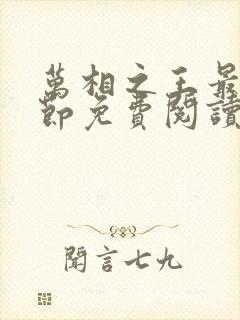 萬相之王最
節免費閱讀
聞言七九